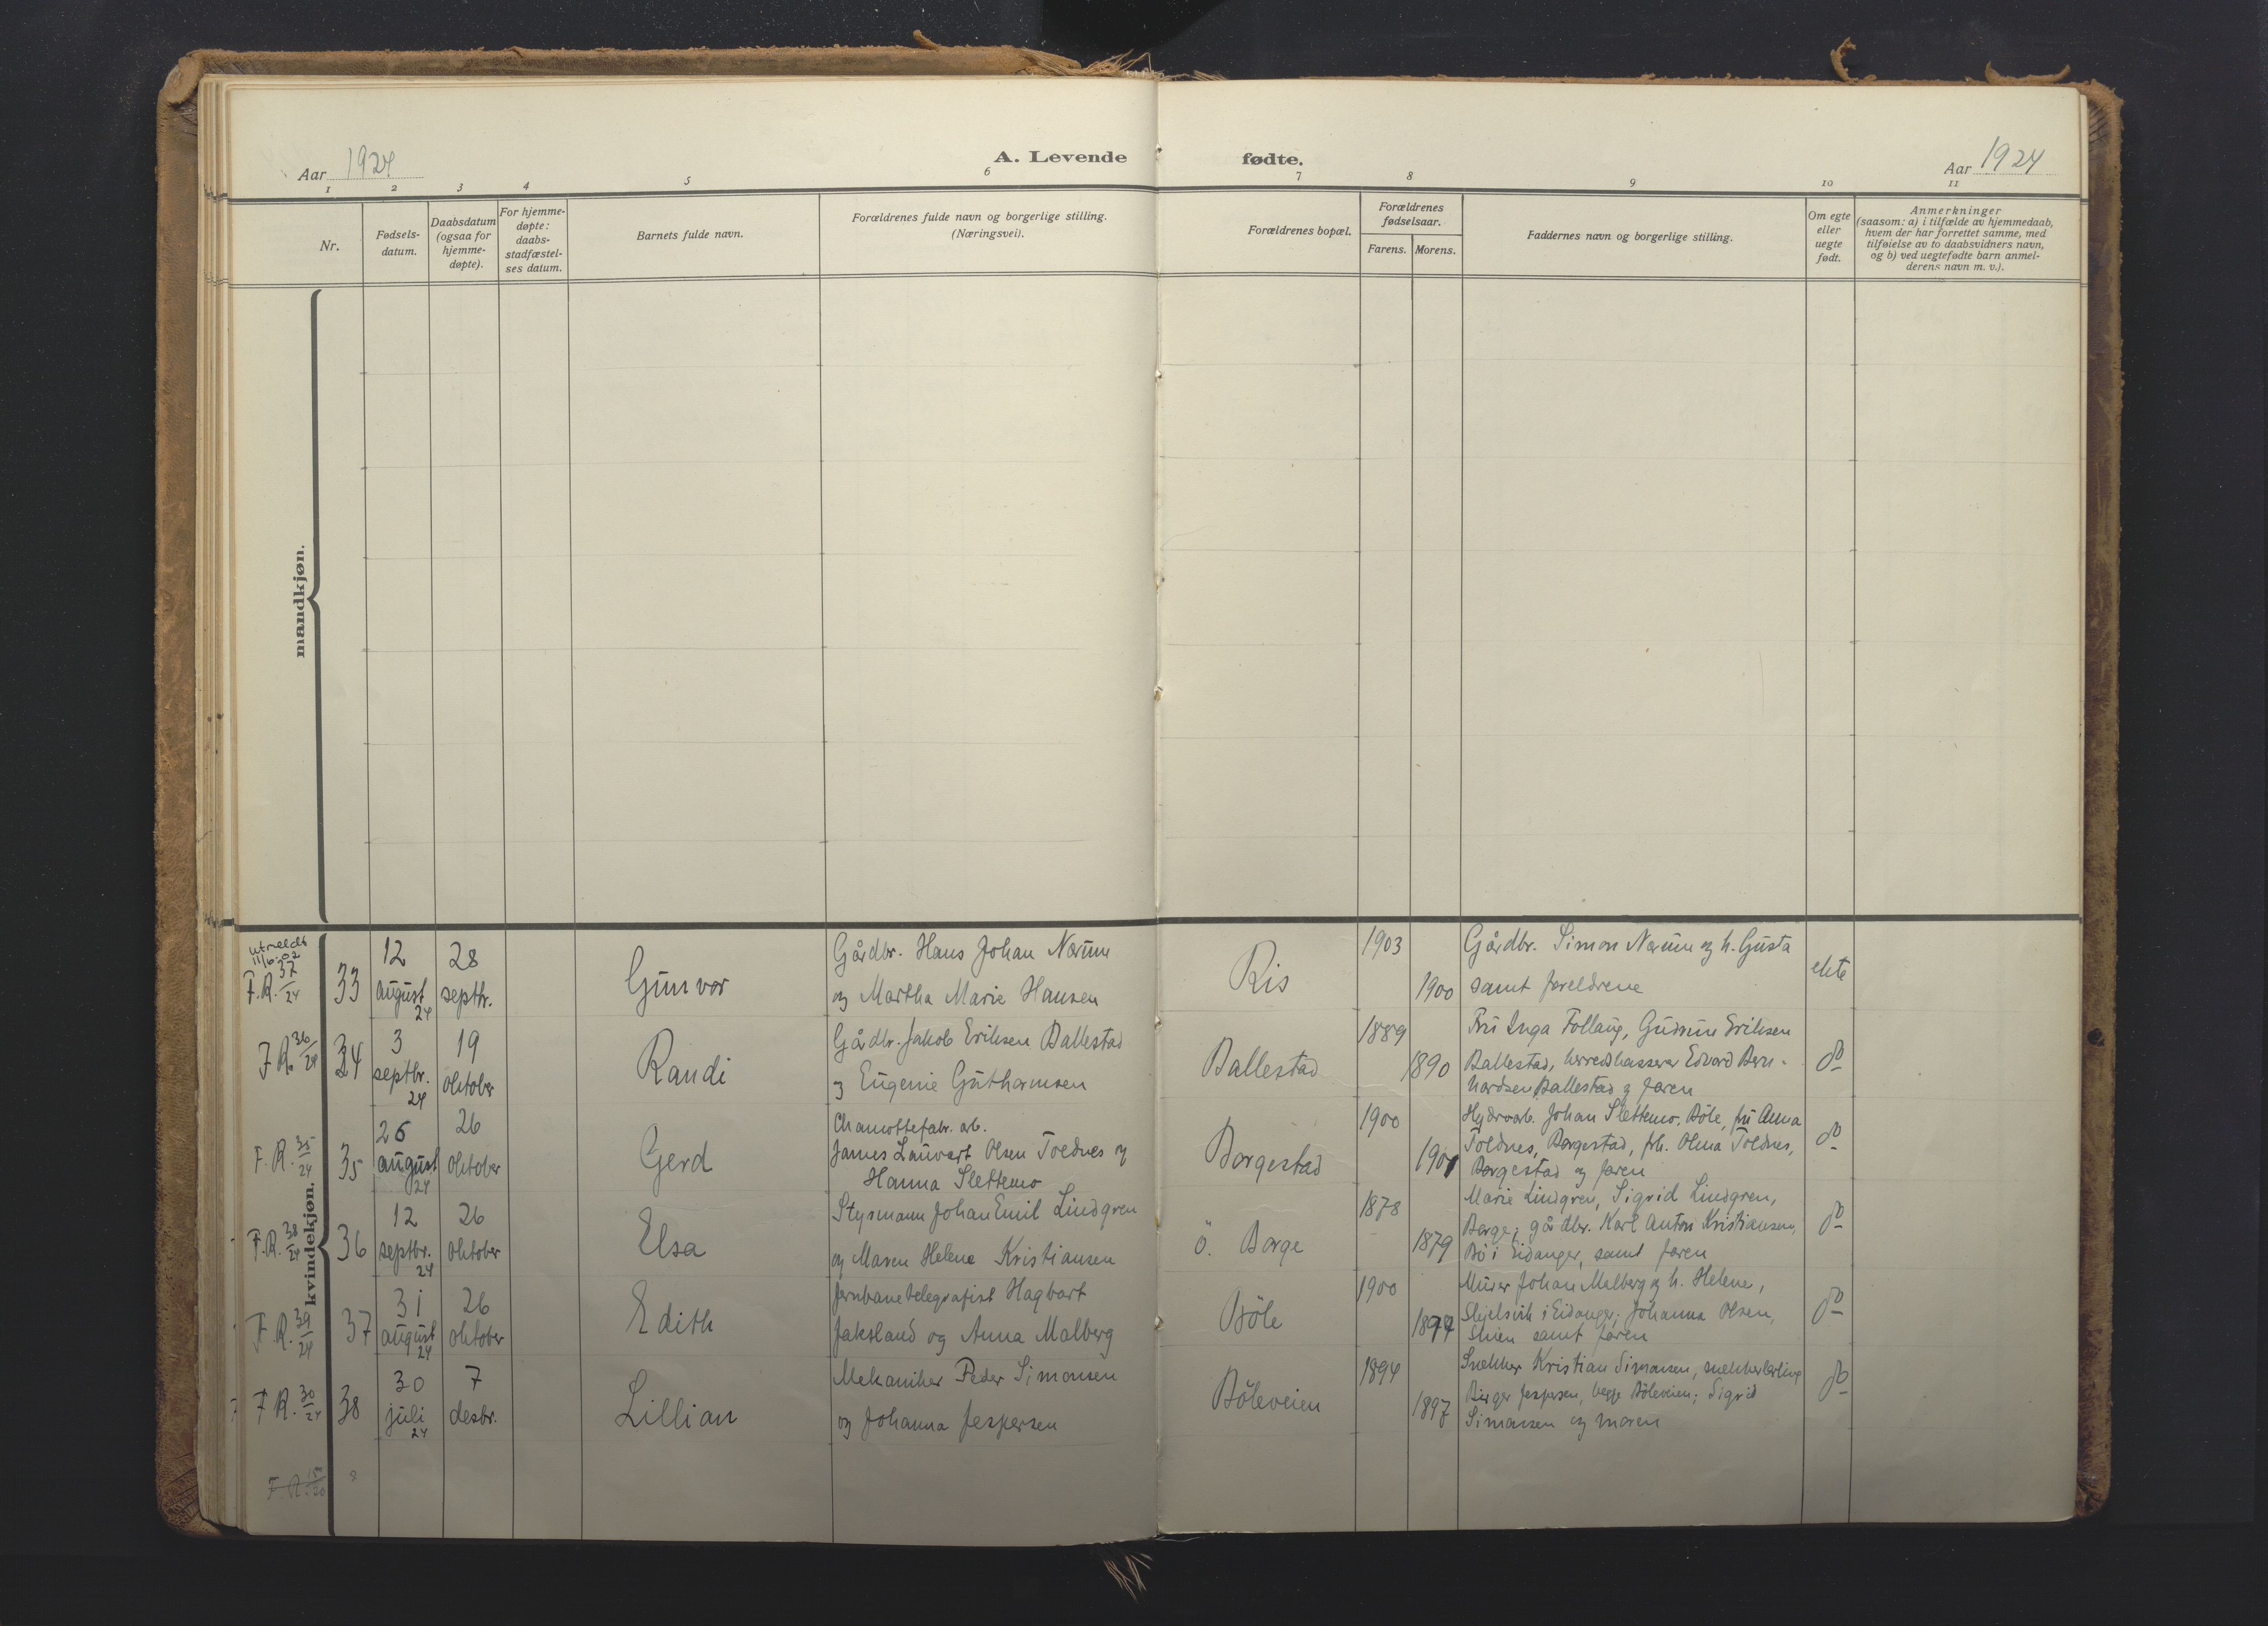 Aar 1924
A. Levende fødte.
Aar 1924
1 2 3 4 5 6 7 8 9 10 11
Nr.
Fødsels-
datum.
Daabsdatum
(ogsaa for
hjemme-
døpte).
For hjemme-
døpte:
daabs-
stadfæstel-
ses datum.
Barnets fulde navn.
Forældrenes fulde navn og borgerlige stilling.
(Næringsvei).
Forældrenes bopæl.
Forældrenes
fødselsaar.
Farens. Morens.
Faddernes navn og borgerlige stilling.
Om egte
eller
uegte
født.
Anmerkninger
(saasom: a) i tilfælde av hjemmedaab,
hvem der har forrettet samme, med
tilføielse av to daabsvidners navn,
og b) ved uegtefødte barn anmel-
derens navn m. v.).
mandkjøn.
kvindekjøn.
utmeldt
11/6-02
F.R. 37/24
33
12
august
24
28
septbr.
Gunvor
Gårdbr. Hans Johan Nærum
og Martha Marie Hansen
Ris
1903
1900
Gårdbr. Simon Nærum og h. Gusta
samt foreldrene
ekte
F.R. 36/24
34
3
septbr.
24
19
oktober
Randi
Gårdbr. Jakob Eriksen Ballestad
og Eugenie Guthormsen
Ballestad
1889
1890
Fru Inga Follaug, Gudrun Eriksen
Ballestad, herredskasserer Edvard Bern-
hardsen Ballestad og faren
do
F.R. 35/24
35
26
august
24
26
oktober
Gerd
Chamottefabr. arb.
James Lauvart Olsen Toldnes og
Hanna Slettemo
Borgestad
1900
1901
Hydroarb. Johan Slettemo, Böle, fru Anna
Toldnes, Borgestad, frk. Olma Toldnes,
Borgestad og faren
do
F.R. 38/24
36
12
septbr.
24
26
oktober
Elsa
Styrmann Johan Emil Lindgren
og Maren Helene Kristiansen
Ö. Borge
1878
1879
Marie Lindgren, Sigrid Lindgren,
Borge; gårdbr. Karl Anton Kristiansen,
Bö i Eidanger, samt faren
do
F.R. 39/24
37
31
august
24
26
oktober
Edith
Jernbanetelegrafist Hagbart
Jaksland og Anna Malberg
Böle
1900
Murer Johan Malberg og h. Helene,
Skjelsvik i Eidanger; Johanna Olsen,
Skien samt faren
do
F.R. 30/24
38
30
juli
24
7
desbr.
Lillian
Mekaniker Peder Simonsen
og Johanna Jespersen
Böleveien
1894
1897
Snekker Kristian Simonsen, snekkerlærling
Birger Jespersen, begge Böleveien; Sigrid
Simonsen og moren
do